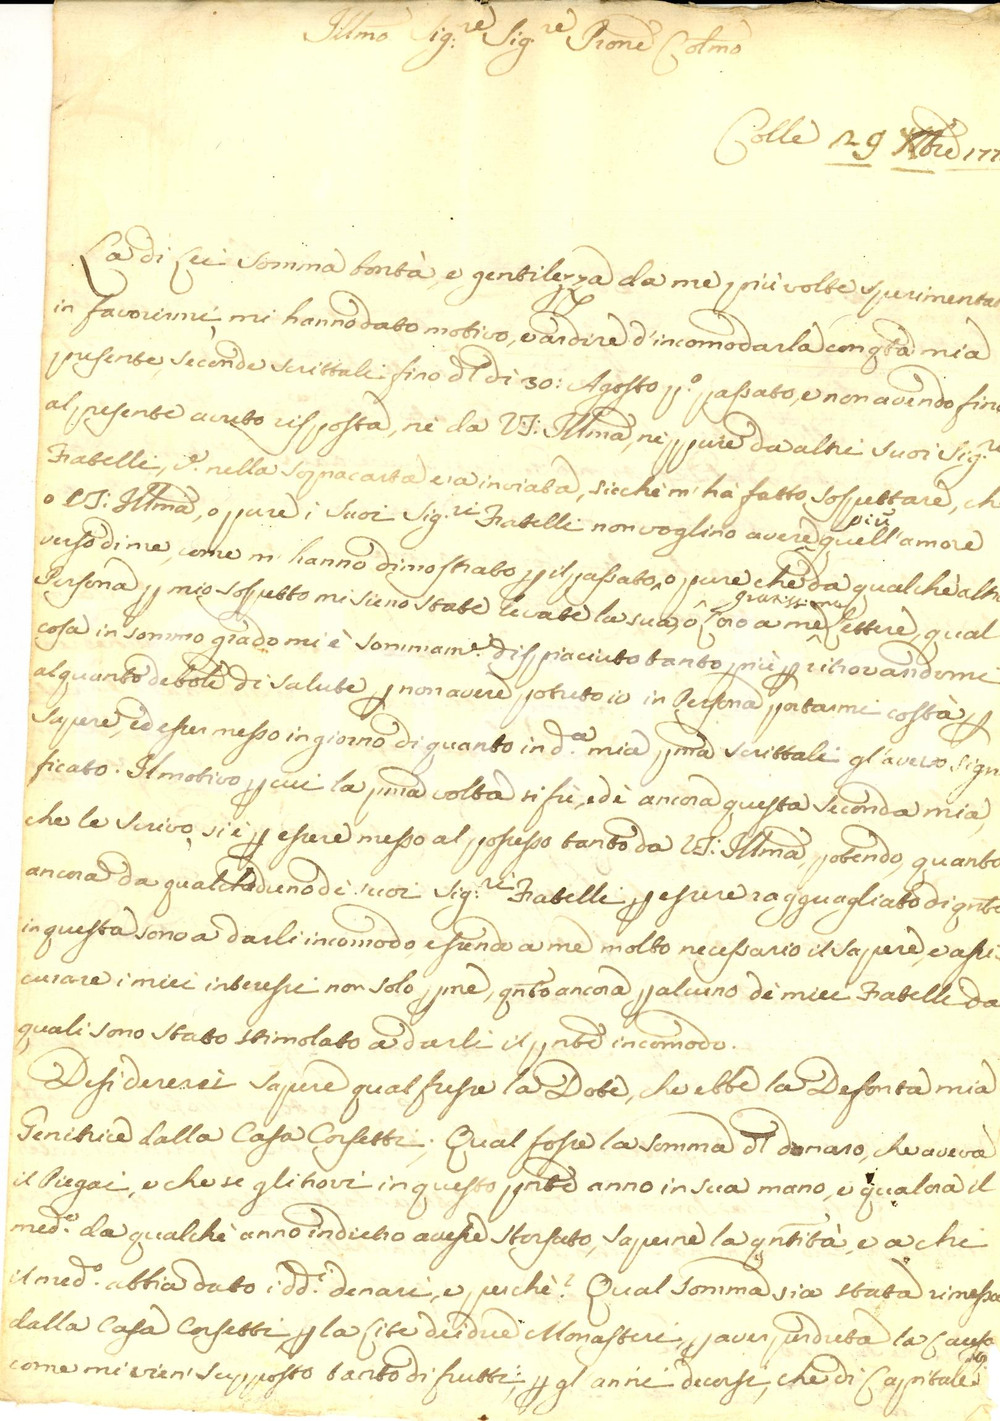 Illmo Sig:re Sig:re Prone Colmo
Colle 29 Xbre 177
La di Lei somma bontà, e gentilezza da me più volte sperimenta
in favorirmi, mi hanno dato motivo, e ardire d'incomodarla con qta mia
presente, seconda scrittali fino dl dì 30: Agosto po. passato, e non avendo fino
al presente avuto risposta, nè da VS: Illma, nè pure da altri suoi Sig.ri
Fratelli, se. nella sopracarta era inviata, sicchè m'ha fatto sospettare, che
o VS: Illma, o pure i suoi Sig.ri Fratelli non voglino avere più quell'amore
verso di me, come m'hanno dimostrato p il passato, o pure che da qualche altra
Persona p mio sospetto mi sieno state levate la sua, o loro a me gratissime Lettere, qual
cosa in sommo grado mi è sommame. dispiaciuto tanto più p ritrovandomi
alquanto debole di salute p non avere potuto io in Persona portarmi costà p
sapere, ed esser messo in giorno di quanto in d.a mia pma scrittali gl'avevo signi
ficato. Il motivo p cui la pma volta si fù, ed è ancora questa seconda mia,
che le scrivo, si è p essere messo al possesso tanto da VS: Illma, potendo, quanto
ancora da qualcheduno de suoi Sig.ri Fratelli p essere ragguagliato di qnto
in questa sono a darli incomodo, essendo a me molto necessario il sapere, e assi
curare i miei interessi non solo p me, qnto ancora p alcuno de miei Fratelli da
quali sono stato stimolato a darli il pnte incomodo.
Desidererei sapere qual fusse la Dote, che ebbe la Defonta mia
Genitrice dalla Casa Corsetti; Qual fosse la somma dl denaro, che aveva
il Piegai, e che se gli trovi in questo pnte anno in sua mano, e qualora il
med.o da qualche anno indietro avesse storsato, saperne la qntità, e a chi
il med.o abbia dato i dd.i denari, e perchè? Qual somma sia stata rimessa
dalla Casa Corsetti p la Lite dei due Monasteri p aver perduta la Causa
come mi vien supposto tanto di frutti, p gl'anni decorsi, che di Capitale